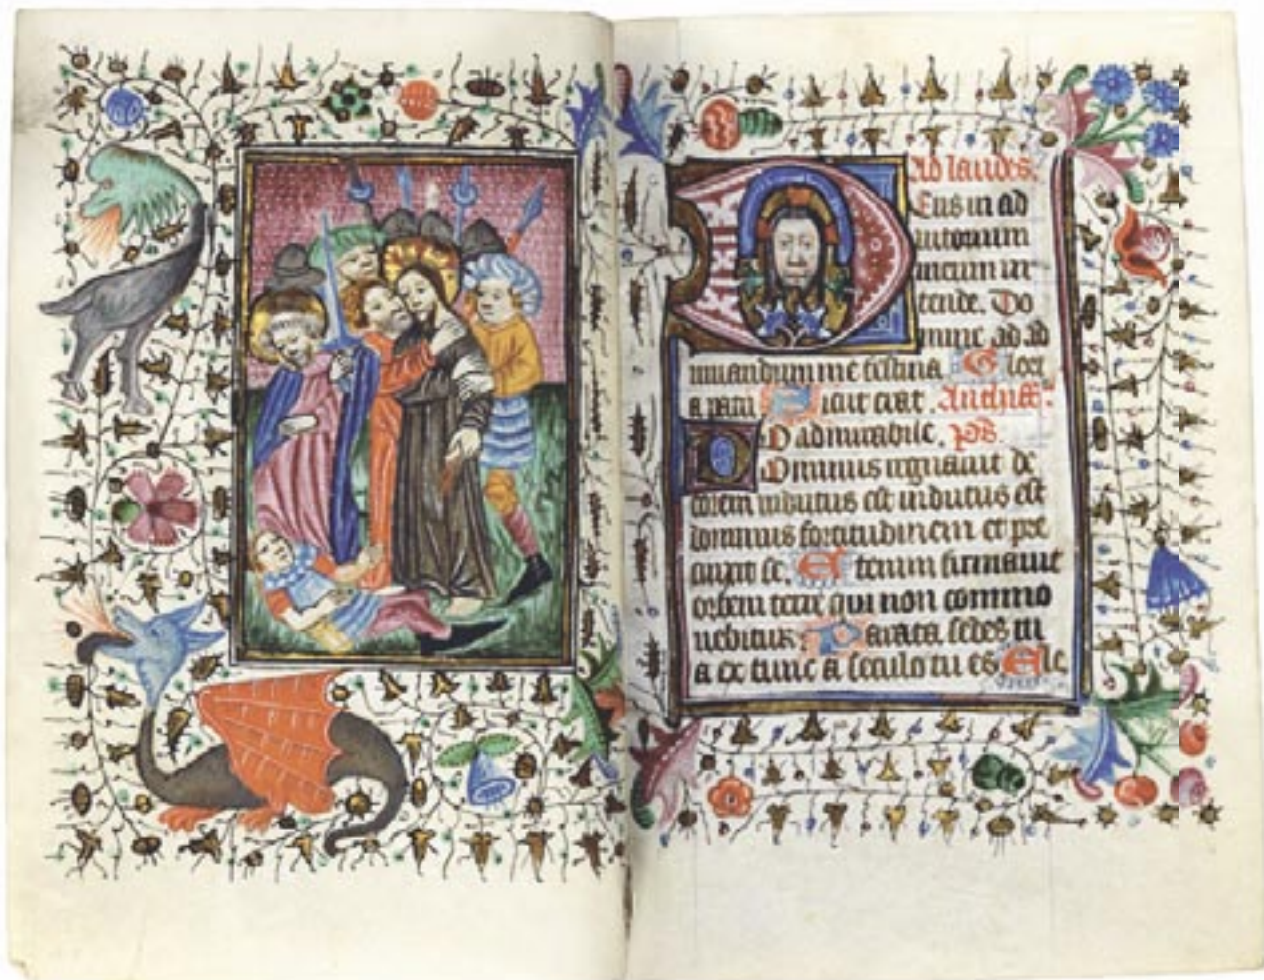 Ad laudes.
Eus in ad
iutorium
meum in
tende. Do
mine ad ad
iuuandum me festina. Glori
a patri Sicut erat. Antiph
O admirabile. ps.
Dominus regnauit de
corem indutus est indutus est
dominus fortitudinem et pre
cinxit se. Et enim firmauit
orbem terre qui non commo
uebitur. Parata sedes tu
a ex tunc a seculo tu es Ele